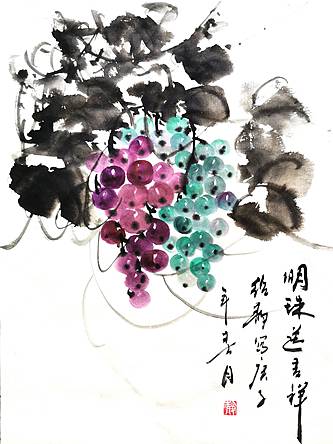 明珠送吉祥
写庚子
年春月